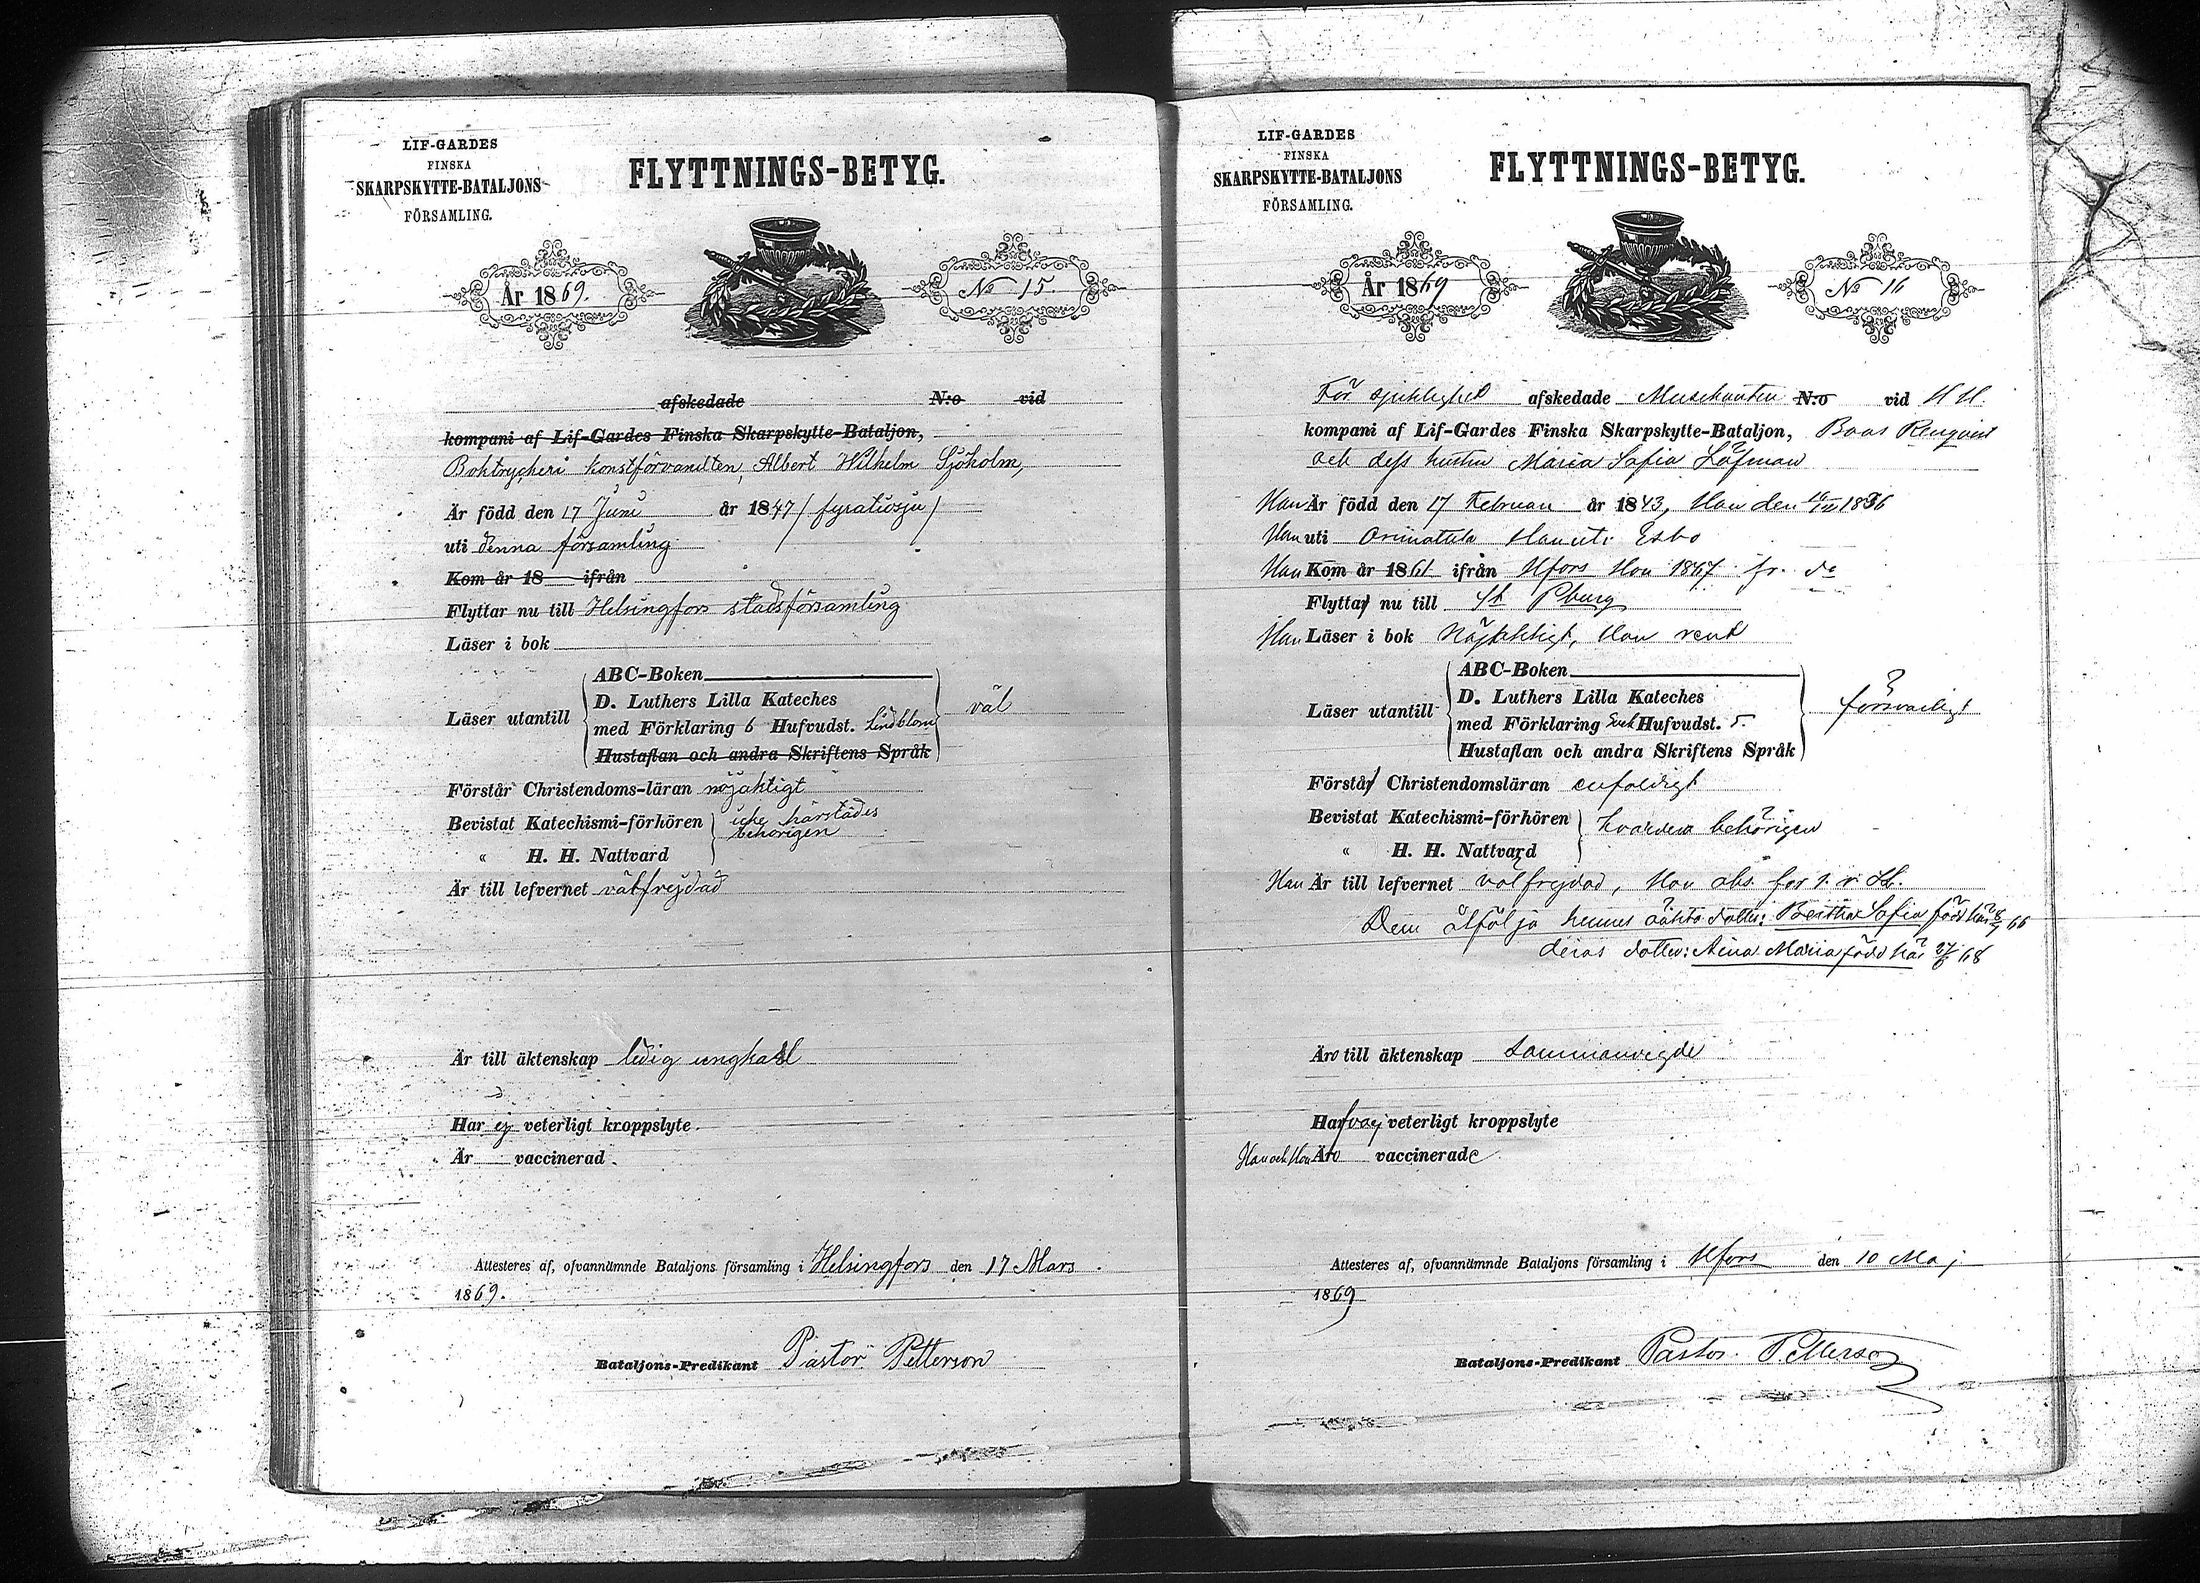 LIF-GARDES
FINSKA
SKARPSKYTTE-BATALJONS
FÖRSAMLING.
FLYTTNINGS-BETYG.
År 1869.
No 15
afskedade N:o vid
kompani af Lif-Gardes Finska Skarpskytte-Bataljon,
Boktryckeri konstförvandten, Albert Wilhelm Sjöholm,
Är född den 17 Juni år 1847 / fyratiosju /
uti denna församling
Kom år 18 ifrån
Flyttar nu till Helsingfors stadsförsamling
Läser i bok
Läser utantill
ABC-Boken
D. Luthers Lilla Kateches
med Förklaring 6 Hufvudst. Lindblom
Hustaflan och andra Skriftens Språk
väl
Förstår Christendoms-läran nöjaktigt
Bevistat Katechismi-förhören icke härstädes
" H. H. Nattvard behörigen
Är till lefvernet välfrejdad
Är till äktenskap ledig ungkarl
Har ej veterligt kroppslyte
Är vaccinerad.
Attesteres af, ofvannämnde Bataljons församling i Helsingfors den 17 Mars
1869.
Bataljons-Predikant Pastor Petterson
LIF-GARDES
FINSKA
SKARPSKYTTE-BATALJONS
FÖRSAMLING.
FLYTTNINGS-BETYG.
År 1869
No 16
För sjuklighet afskedade N:o vid
kompani af Lif-Gardes Finska Skarpskytte-Bataljon, Renqvist
och dess hustru Maria Sofia Löfman
Han Är född den 17 Februari år 1843, Hon den 1836
Han uti Orimattila Hon uti Esbo
Han Kom år 1861 ifrån Hfors Hon 1867 fr. do
Flytta nu till St Pburg
Han Läser i bok Nöjaktigt, Hon rent
Läser utantill
ABC-Boken
D. Luthers Lilla Kateches
med Förklaring Hufvudst. 5
Hustaflan och andra Skriftens Språk
försvarligt
Förstå Christendomsläran enfaldigt
Bevistat Katechismi-förhören
" H. H. Nattvard
hvardera behörigen
Han Är till lefvernet välfrejdad, Hon abs. för
Dem åtfölja hennes oäkta dotter: Bertha Sofia född här 66
deras dotter: Aina Maria född här 68
Äro till äktenskap Sammanvigde
Hafva ej veterligt kroppslyte
Han och Hon Äro vaccinerade
Attesteres af, ofvannämnde Bataljons församling i Hfors den 10 Maj
1869
Bataljons-Predikant Pastor Petterson